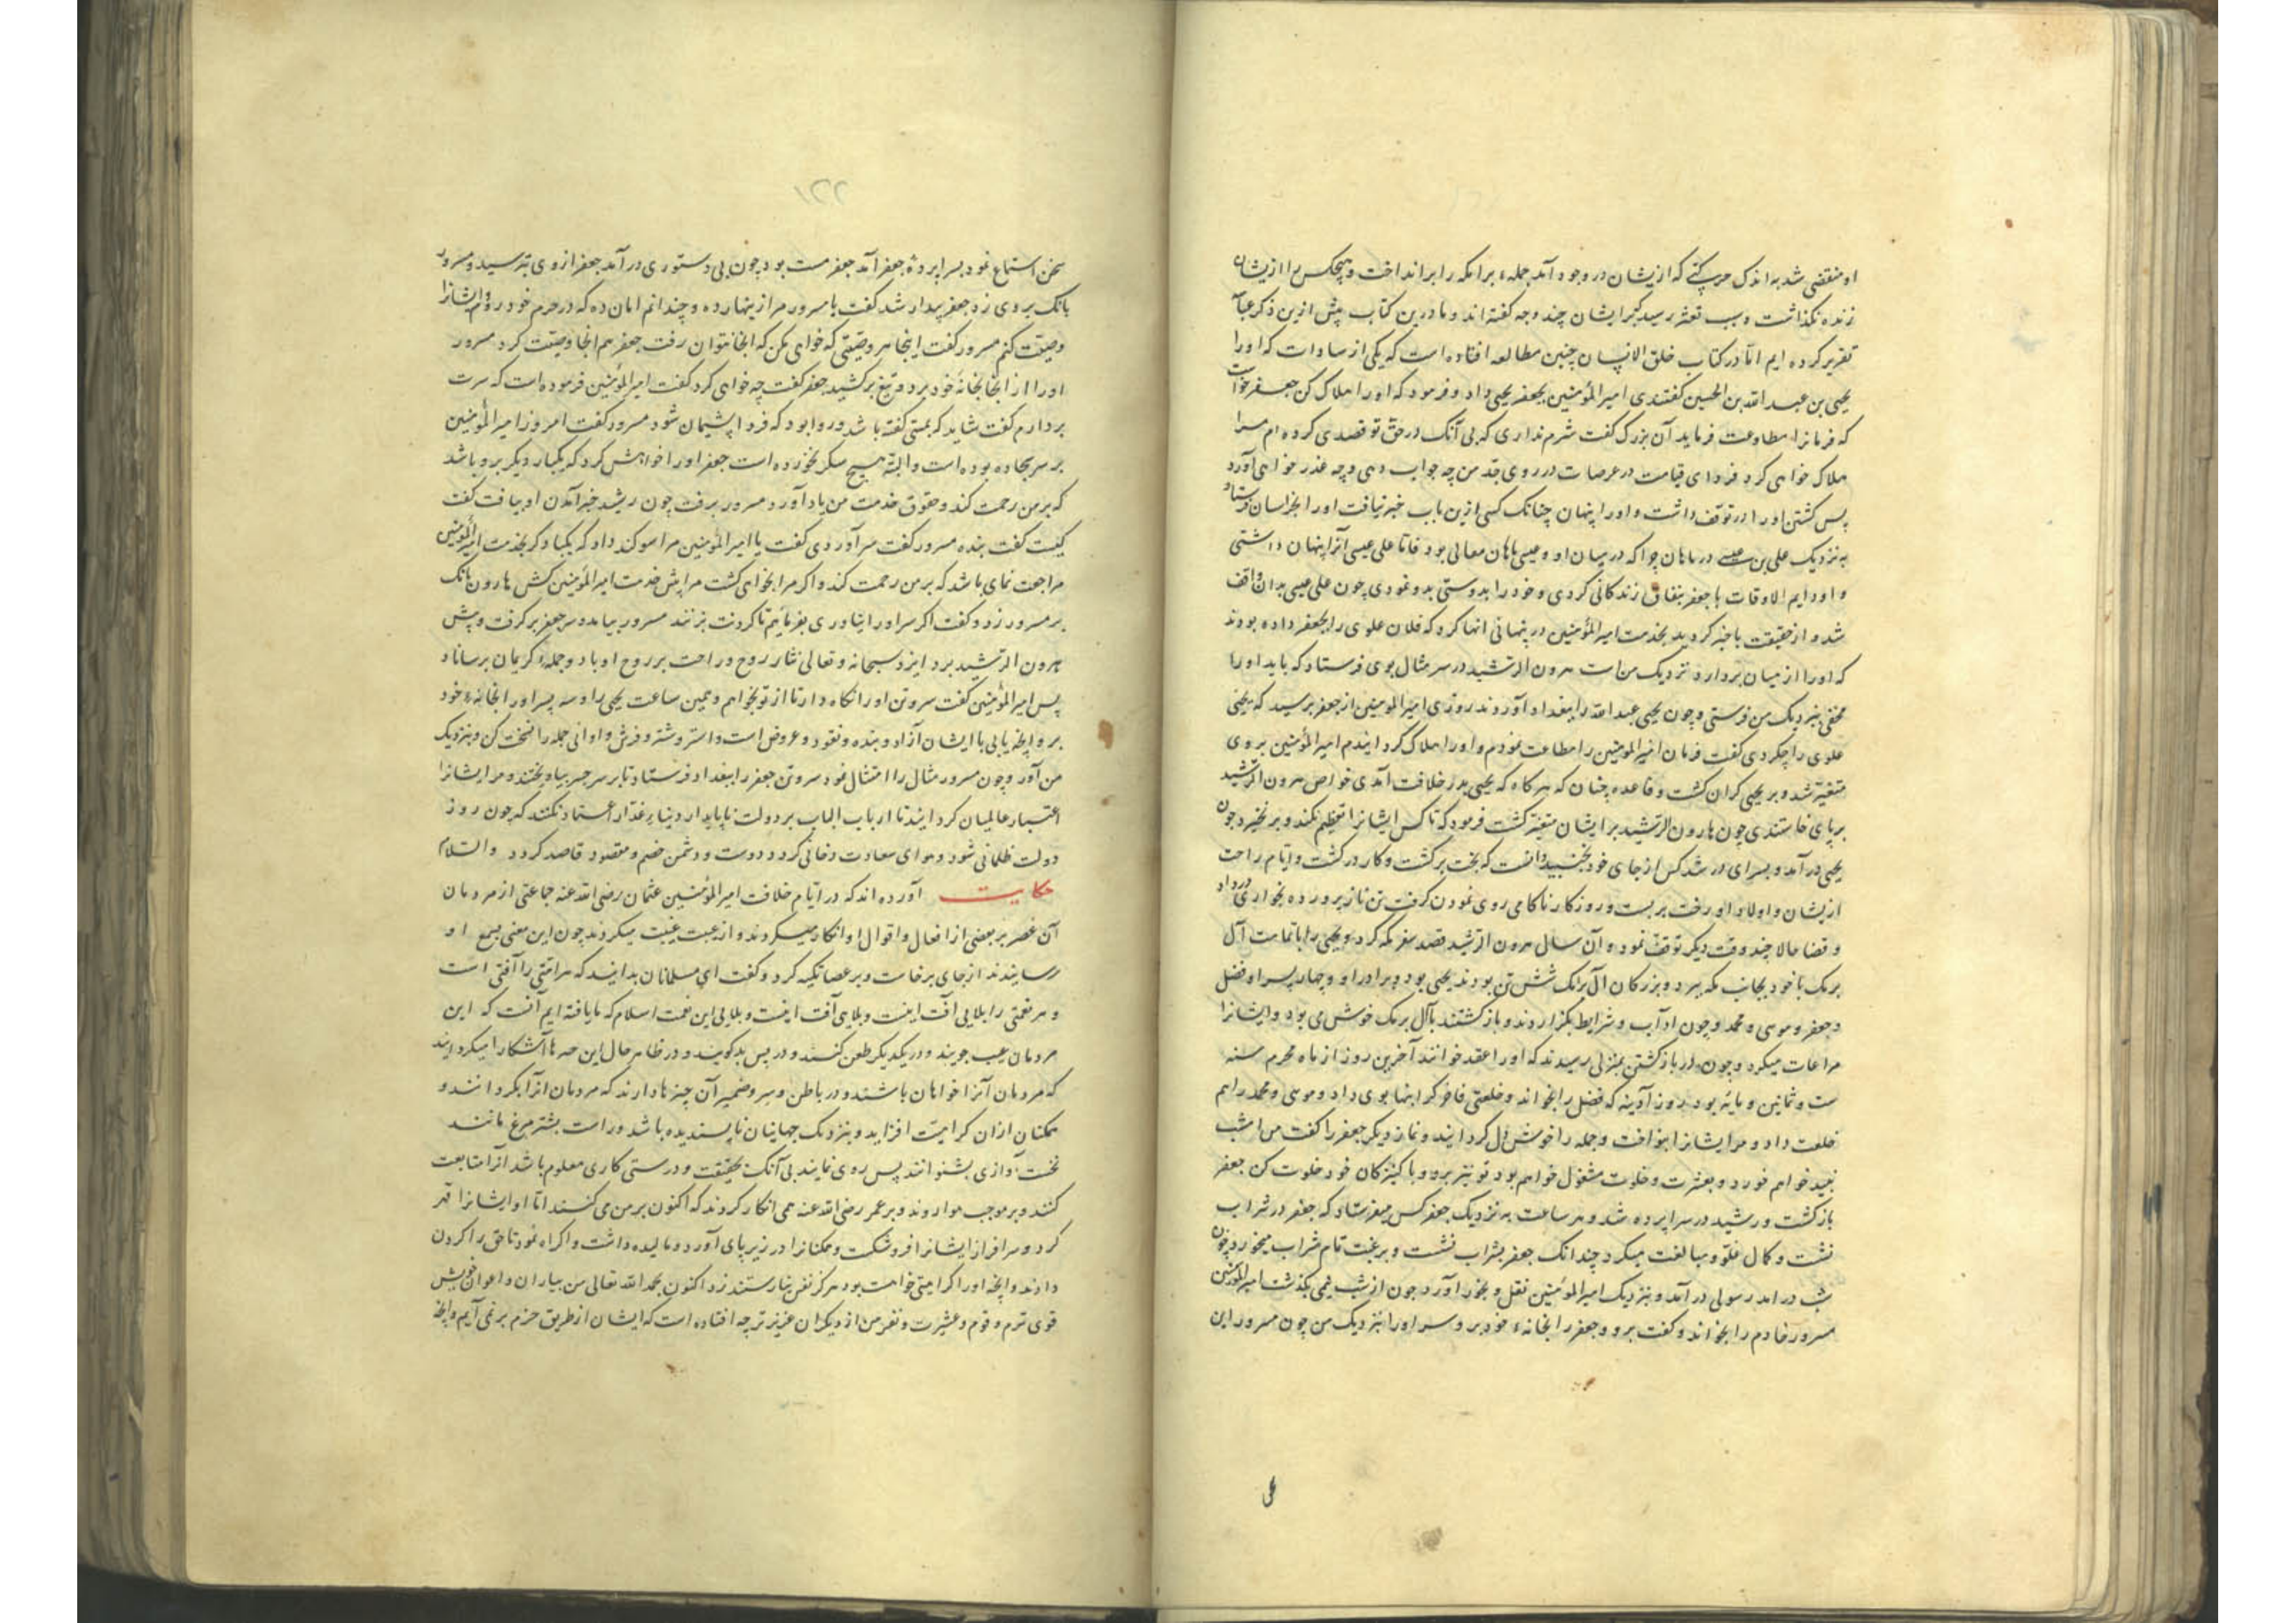 او منقضی شد به اندک حرکتی که ازیشان در وجود آمد جمله برامکه را برانداخت و هیچکس را ازیشان
زنده نگذاشت و سبب تغیر رشید بر ایشان چند وجه گفته اند و ما درین کتاب پیش ازین ذکر
تقریر کرده ایم اما در کتاب خلق الانسان چنین مطالعه افتاده است که یکی از سادات که او را
یحیی بن عبد الله بن الحسین گفتندی امیر المؤمنین بجعفر یحیی داد و فرمود که او را هلاک کن جعفر خواست
که فرمانرا مطاوعت فرماید آن بزرگ گفت شرم نداری که بی آنک در حق تو قصدی کرده ام مرا
هلاک خواهی کرد فردای قیامت در عرصات در روی جد من چه جواب دهی و چه عذر خواهی آورد
پس کشتن او را در توقف داشت و او را پنهان چنانک کسی ازین باب خبر نیافت او را بخراسان فرستاد
به نزدیک علی بن عیسی در ماهان چرا که در میان او و عیسی ماهان معالی بود فاتا علی عیسی آنرا پنهان داشتی
و او دایم الاوقات با جعفر بنفاق زندکانی کردی و خود را بدوستی بدو نمودی چون علی عیسی بدان واقف
شد و از حقیقت باخبر کردید بخدمت امیر المؤمنین در پنهانی انها کرد که فلان علوی را بجعفر داده بودند
که او را از میان بردارد نزدیک من است هرون الرشید در سر مثال بوی فرستاد که باید او را
مخفی بنزدیک من فرستی و چون یحیی عبد الله را ببغداد آوردند روزی امیر المومنین از جعفر پرسید که یحیی
علوی را چکردی گفت فرمان امیر المومنین را مطاعت نمودم و او را هلاک گردانیدم امیر المؤمنین بروی
متغیر شد و بر یحیی کران کشت و قاعده چنان که هر کاه که یحیی بدر خلافت آمدی خواص هرون الرشید
برپای خاستندی چون هارون الرشید بر ایشان متغیر کشت فرمود که تا کس ایشانرا تعظیم نکند و برنخیزد چون
یحیی در آمد و بسرای در شد کس از جای خود نجنبید دانست که بخت برکشت و کار درکشت و ایام راحت
ازیشان و اولاد او رخت بربست و روزکار ناکامی روی نمودن کرفت تن ناز پرورده بخواری درداد
و قضا حالا چند وقت دیکر توقف نموده آن سال هرون الرشید قصد سفر مکه کرد و یحیی را با تمامت آل
برمک با خود بجانب مکه ببرد و بزرکان آل برمک شش تن بودند یحیی بود و برادر او و چهار پسر او فضل
و جعفر و موسی و محمد و چون آداب و شرایط بگزاردند و باز کشتند با آل برمک خوش می بود و ایشانرا
مراعات میکرد و چون در بازکشتن بمنزلی رسیدند که او را عقد خوانند آخرین روز از ماه محرم سنه
ست و ثمانین و مایه بود روز آدینه که فضل را بخواند و خلعتی فاخر کرانبها بوی داد و موسی و محمد را هم
خلعت داد و مر ایشانرا بنواخت و جمله را خوش دل کردانید و نماز دیکر جعفر را گفت من امشب
نبید خواهم خورد و بعشرت و خلوت مشغول خواهم بود تو نیز برو و با کنیزکان خود خلوت کن جعفر
بازکشت و رشید در سراپرده شد و هر ساعت به نزدیک جعفر کس میفرستاد که جعفر در شراب
نشت و کمال غلو و مبالغت میکرد چندانک جعفر بشراب نشست و برغبت تمام شراب میخورد چون
شب درامد رسولی در آمد و بنزدیک امیر المؤمنین نقل و بخور آورد چون از شب نیمی بگذشت امیر المؤمنین
مسرور خادم را بخواند و گفت برو و جعفر را بخانه خود بر و سر او را بنزدیک من چون مسرور این
۲۲۱
سخن استماع نمود بسراپرده جعفر آمد جعفر مست بود چون بی دستوری در آمد جعفر از وی بترسید و مسرور
بانک بر وی زد جعفر بیدار شد گفت یا مسرور مرا زینهار ده و چندانم امان ده که در حرم خود روم و ایشانرا
وصیت کنم مسرور گفت اینجا هر وصیتی که خواهی بکن که آنجا نتوان رفت جعفر هم آنجا وصیت کرد مسرور
او را از آنجا بخانه خود برد و تیغ برکشید جعفر گفت چه خواهی کرد گفت امیر المؤمنین فرموده است که سرت
بردارم گفت شاید که بمستی گفته باشد و روا بود که فردا پشیمان شود مسرور گفت امروز امیر المؤمنین
بر سر سجاده بوده است و البته هیچ مسکر نخورده است جعفر او را خواهش کرد که یکبار دیکر برو باشد
که بر من رحمت کند و حقوق خدمت من یاد آورد مسرور برفت چون رشید خبر آمدن او بیافت گفت
کیست گفت بنده مسرور گفت سر آوردی گفت یا امیر المؤمنین مرا سوکند داد که یکبار دکر بخدمت امیر المؤمنین
مراجعت نمای باشد که بر من رحمت کند و اکر مرا بخواهی کشت مرا پیش خدمت امیر المؤمنین کش هارون بانک
بر مسرور زد و گفت اکر سر او را نیاوری بفرمایم تا کردنت بزنند مسرور بیامد و سر جعفر بر کرفت و پیش
هرون الرشید برد ایزد سبحانه و تعالی نثار روح و راحت بر روح او باد و جمله کریمان برساناد
پس امیر المؤمنین گفت سر و تن او را نکاه دار تا از تو بخواهم و همین ساعت یحیی را و سه پسر او را بخانه خود
بر و آنچه یابی با ایشان آزاد و بنده و نقود و عروض است و استر و شتر و فرش و اوانی جمله را نسخت کن و بنزدیک
من آور و چون مسرور مثال را امتثال نمود سر و تن جعفر را ببغداد فرستاد تا بر سر جسر بیاویختند و مر ایشانرا
اعتبار عالمیان کردانید تا ارباب الباب بر دولت ناپایدار و دنیاء غدار اعتماد نکنند که چون روز
دولت ظلمانی شود و هوای سعادت دخانی کردد دوست و دشمن خصم و مقصود قاصد کردد والسلام
حکایت آورده اند که در ایام خلافت امیر المؤمنین عثمان رضی الله عنه جماعتی از مردمان
آن عصر بر بعضی از افعال و اقوال او انکار میکردند و از عیبت غیبت میکردند چون این معنی بسمع او
رسانیدند از جای برخاست و بر عصا تکیه کرد و گفت ای مسلمانان بدانید که هر امتی را آفتی است
و هر نعمتی را بلایی آفت اینست و بلای آفت اینست و بلایی این نعمت اسلام که ما یافته ایم آنست که این
مردمان عیب جویند و در یکدیکر طعن کنند و در پس بد کویند و در ظاهر حال این صرها آشکارا میکردانند
که مردمان آنرا خواهان باشند و در باطن و سر و ضمیر آن چیزها دارند که مردمان از آن بکردانند و
ممکنان ازان کراهیت افزاید و بنزدیک جهانیان ناپسندیده باشد و راست بشتر مرغ مانند
نخست آوازی بشنوانند پس روی نمایند بی آنک بحقیقت و درستی کاری معلوم باشد آنرا متابعت
کنند و بر موجب هوا روند و بر عمر رضی الله عنه همی انکار کردند که اکنون بر من می کنند اما او ایشانرا قهر
کرد و سرافراز ایشانرا فرو شکست و همکنانرا در زیر پای آورد و مالیده داشت و اکراه نمود تا حق را کردن
دادند و آنچه او را کراهیتی خواست بود هرکز نفس نیارستند زد اکنون بحمد الله تعالی من بیاران و اعوان خویش
قوی ترم و قوم و عشیرت و نفر من از دیکران عزیزتر چه افتاده است که ایشان از طریق حزم بر نمی آیم و آنچه